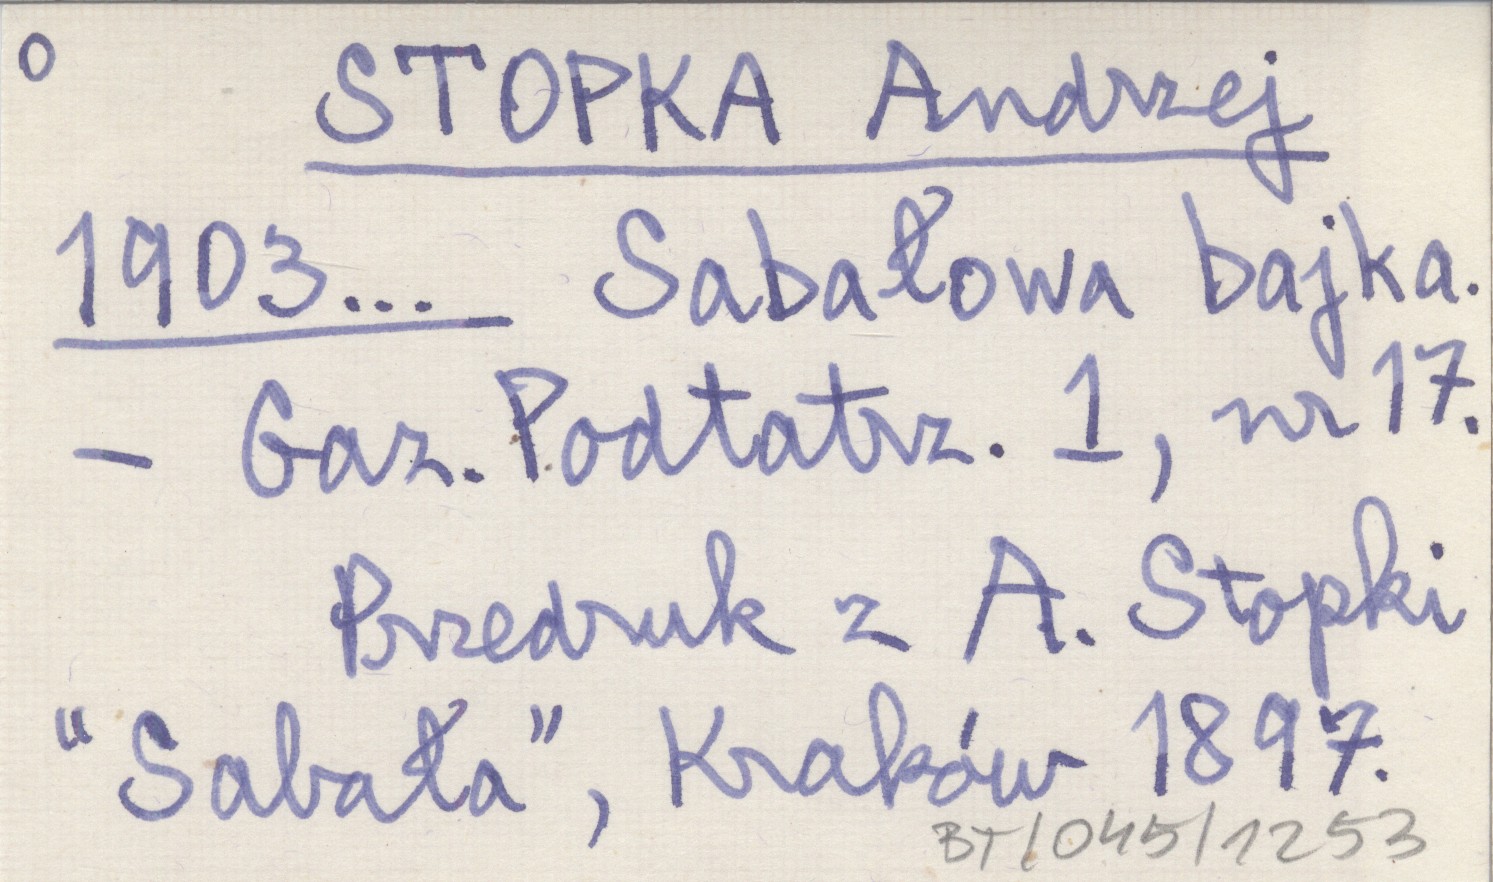 o STOPKA Andrzej
1903... Sabałowa bajka.
- Gaz. Podtatrz. 1, nr 17.
Przedruk z A. Stopki
"Sabała", Kraków 1897.
BT/045/1253